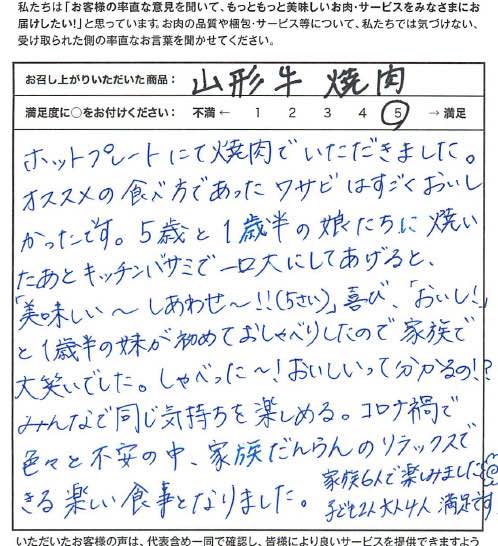 私たちは「お客様の率直な意見を聞いて、もっともっと美味しいお肉・サービスをみなさまにお
届けしたい!」と思っています。お肉の品質や梱包・サービス等について、私たちでは気づけない、
受け取られた側の率直なお言葉を聞かせてください。
お召し上がりいただいた商品： 山形牛 焼肉
満足度に○をお付けください： 不満 ← 1 2 3 4 5 → 満足
ホットプレートにて焼肉でいただきました。
オススメの食べ方であったワサビはすごくおいし
かったです。5歳と1歳半の娘たちに焼い
たあとキッチンバサミで一口大にしてあげると、
「美味しい〜しあわせ〜!!(5さい)」喜び、「おいし!」
と1歳半の妹が初めておしゃべりしたので家族で
大笑いでした。しゃべった〜!おいしいって分かるの!?
みんなで同じ気持ちを楽しめる。コロナ禍で
色々と不安の中、家族だんらんのリラックスで
きる楽しい食事となりました。
家族6人で楽しみました
子ども2人大人4人 満足です
いただいたお客様の声は、代表含め一同で確認し、皆様により良いサービスを提供できますよう